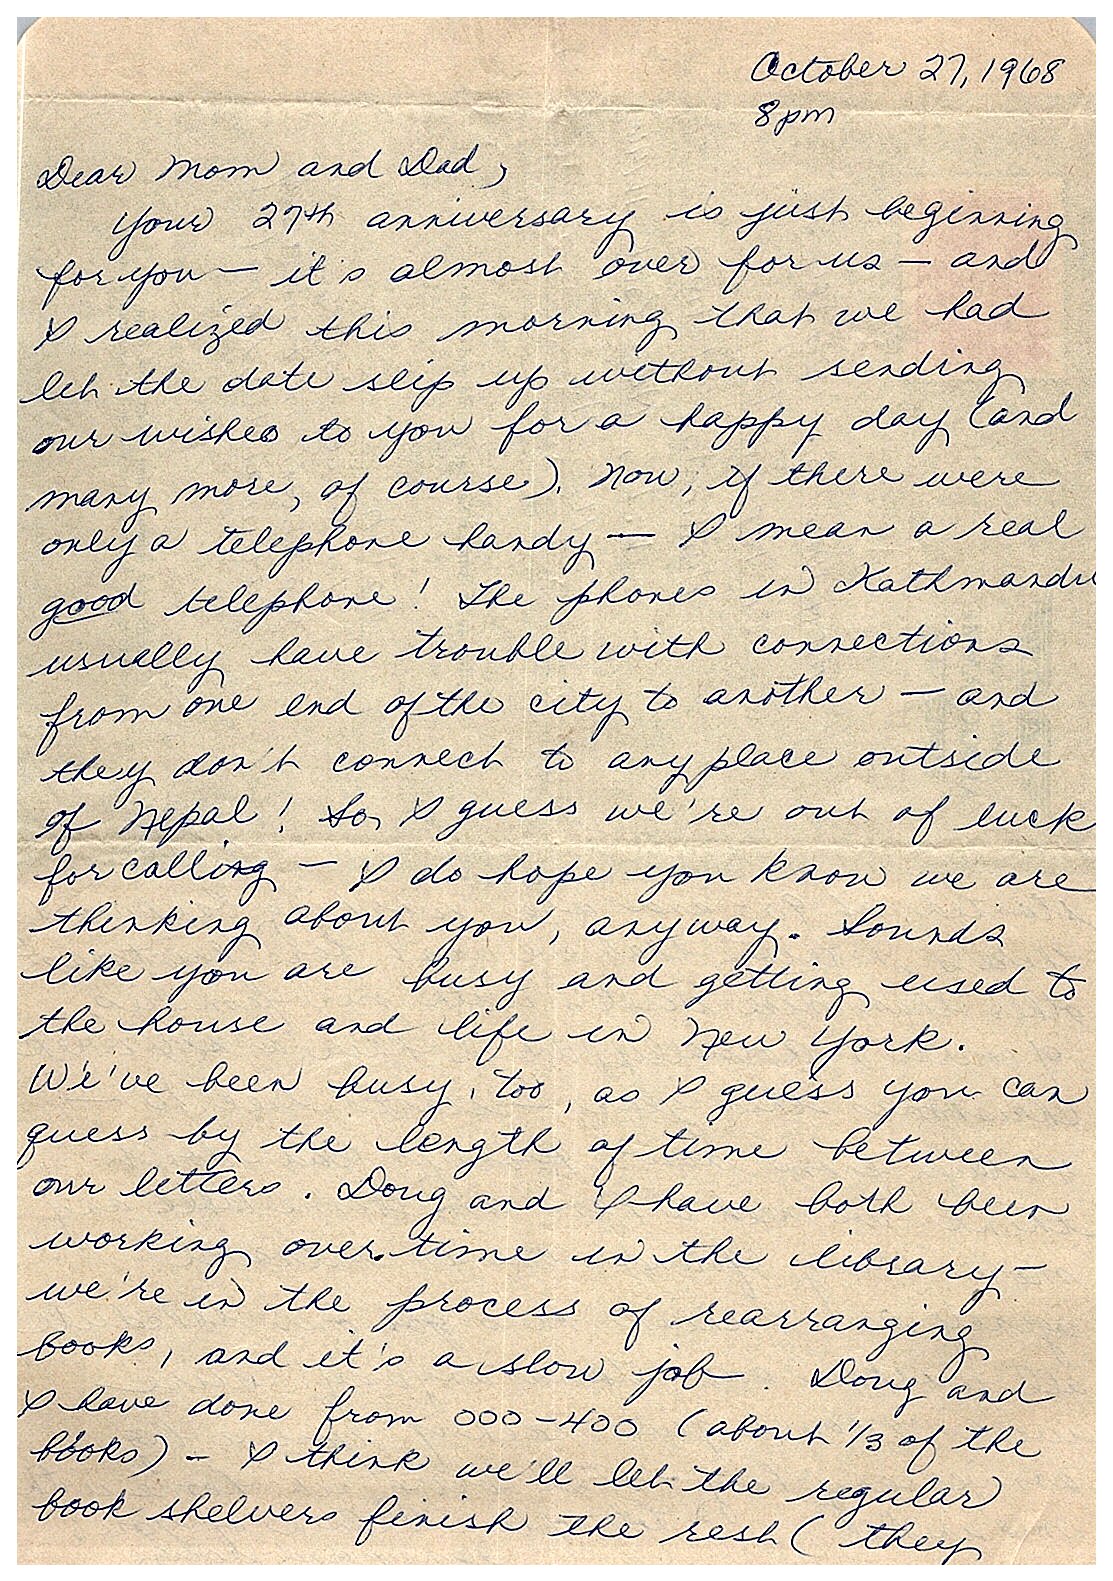 October 27, 1968
8pm
Dear Mom and Dad,
Your 27th anniversary is just beginning
for you — it's almost over for us — and
I realized this morning that we had
let the date slip up without sending
our wishes to you for a happy day (and
many more, of course). Now, if there were
only a telephone handy — I mean a real
good telephone! The phones in Kathmandu
usually have trouble with connections
from one end of the city to another — and
they don't connect to any place outside
of Nepal! So, I guess we're out of luck
for calling — I do hope you know we are
thinking about you, anyway. Sounds
like you are busy and getting used to
the house and life in New York.
We've been busy, too, as I guess you can
guess by the length of time between
our letters. Doug and I have both been
working over.time in the library —
we're in the process of rearranging
books, and it's a slow job. Doug and
I have done from 000-400 (about 1/3 of the
books) — I think we'll let the regular
book shelvers finish the rest (they